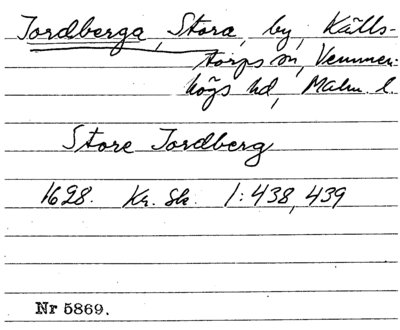 Jordberga, Stora, by, Källs-
torps sn, Vemmen-
högs hd, Malm. l.
Store Jordberg
1628. Kr. Sk. 1:438, 439
Nr 5869.